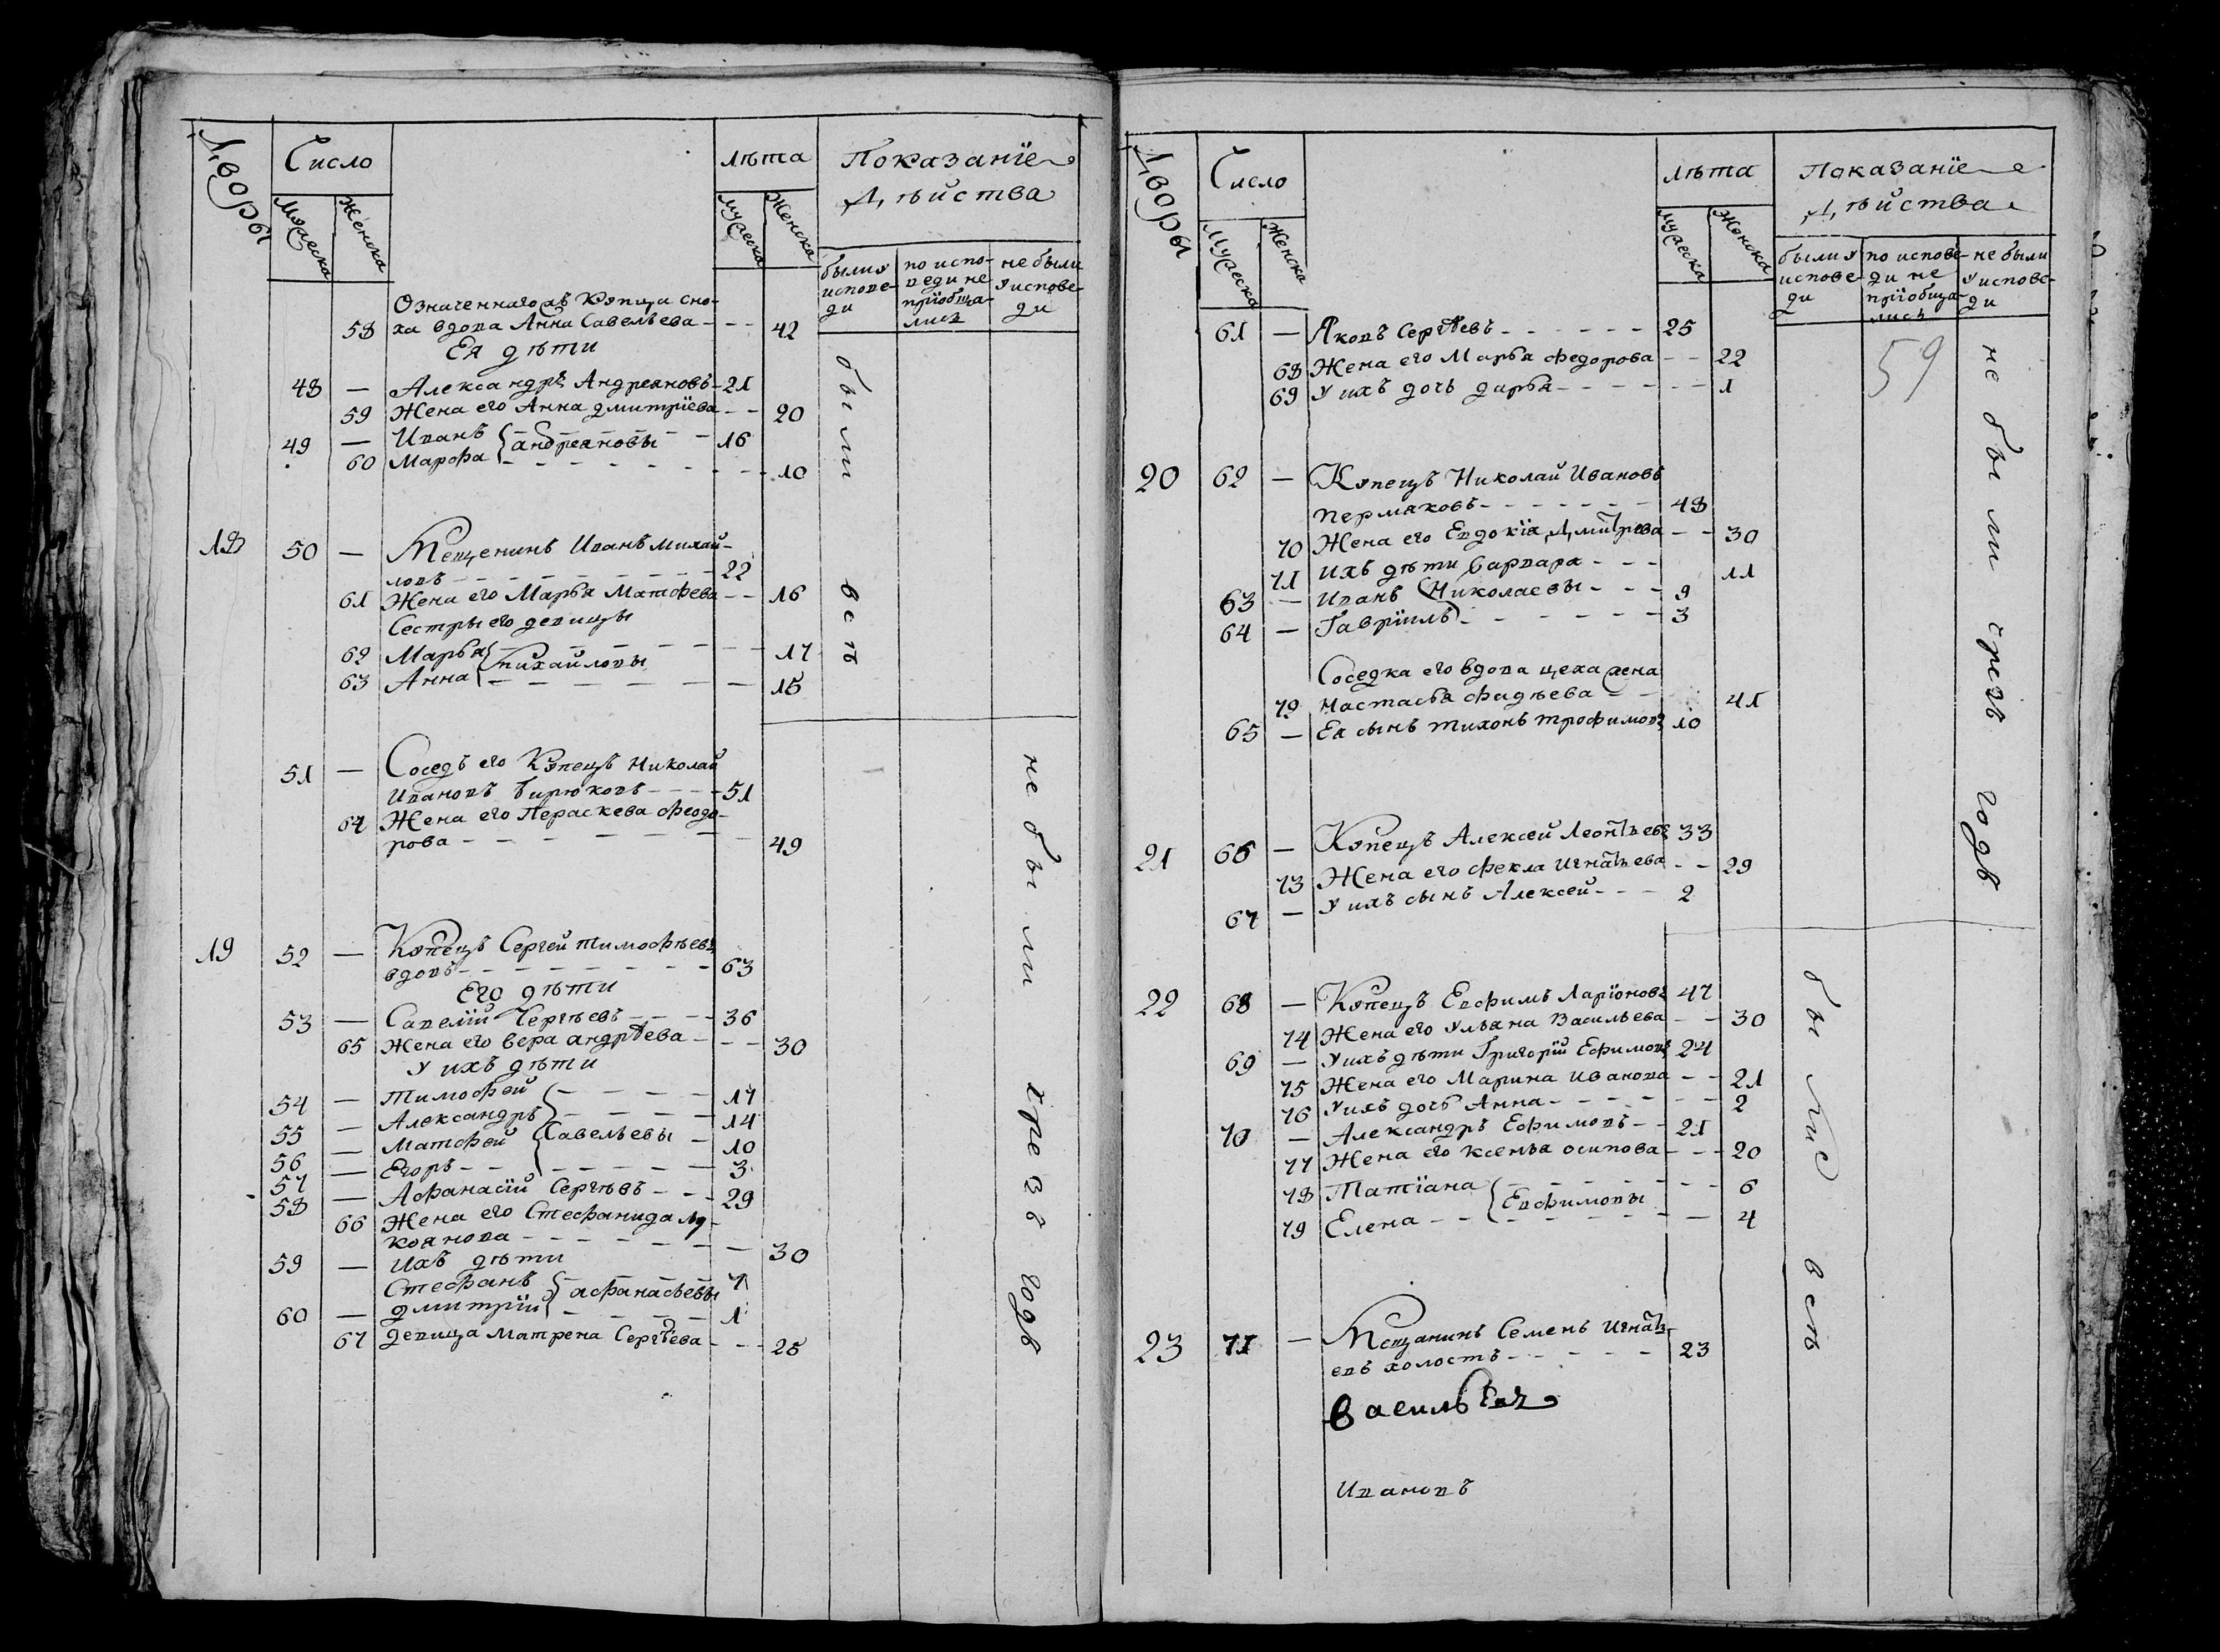 Дворы
Число
лѣта
Показанїе
Дѣйства
Мужеска
Женска
мужеска
Женска
были у исповеди
по исповеди не прїобщались
не были у исповеди
Означеннагожъ Купца сно-
58 ха вдова Анна Савельева - - - 42
Ея дѣти
48 — Александръ Андреяновъ - 21
59 Жена его Анна дмитрїева - - 20
49 — Иванъ - - - 16
андреяновы
60 Марфа - - - 10
были всѣ
18 50 — Мещенинъ Иванъ михай-
ловъ - - - 22
61 Жена его Марья Матфева - - 16
Сестры его девицы
62 Марья - - - 17
михайловы
63 Анна - - - 15
51 — Соседъ его Купецъ Николай
Ивановъ Бирюковъ - - - 51
64 Жена его Пераскева Феодо-
рова - - - 49
19 52 — Купецъ Сергей тимофѣевъ
вдовъ - - - 63
Его дѣти
53 — Савелїй Сергѣевъ - - - 36
65 Жена его вера андрѣева - - - 30
У ихъ дѣти
54 — Тимофей - - - 17
55 — Александръ - - - 14
56 — Матфей Савельевы - 10
57 — Егоръ - - - 3
58 — Афанасїй Сергѣевъ - - - 29
66 Жена его Стефанида лу-
коянова - - - 30
59 — Ихъ дѣти
Стефанъ - - - 7
афанасьевы
60 — дмитрїй - - - 1
67 девица матрена Сергѣева - - - 25
не были чрезъ годъ
Дворы
Число
лѣта
Показанїе
Дѣйства
Мужеска
Женска
мужеска
Женска
были у исповеди
по исповеди не прїобщались
не были у исповеди
59
61 — Яковъ Сергѣевъ - - - 25
68 Жена его Марья федорова - - 22
69 У ихъ дочь дарья - - - 1
20 62 — Купецъ Николай Ивановъ
пермяковъ - - - 48
70 Жена его Евдокїя Дмитрева - - 30
71 ихъ дѣти варвара - - - 11
63 — Иванъ Николаевы - - - 9
64 — Гаврїилъ - - - 3
Соседка его вдова цеха жена
72 настасья фадѣева - - 41
65 — Ея сынъ тихонъ трофимовъ 10
21 66 — Купецъ Алексей Леонтьевъ 33
73 Жена его фекла игнатьева - - 29
67 — У ихъ сынъ Алексей - - - 2
не были чрезъ годъ
22 68 — Купецъ Евфимъ Ларїоновъ 47
74 Жена его Ульяна Васильева - - 30
69 — У ихъ дѣти Григорїй Ефимовъ 24
75 Жена его Марина иванова - - 21
76 У ихъ дочь Анна - - - 2
70 — Александръ Ефимовъ - - 21
77 Жена его ксенья осипова - - - 20
78 Татїана - - - 6
Евфимовы
79 Елена - - - 4
23 71 — Мещанинъ Семенъ игнать-
евъ холостъ - - - 23
были всѣ
васильевъ
Ивановъ